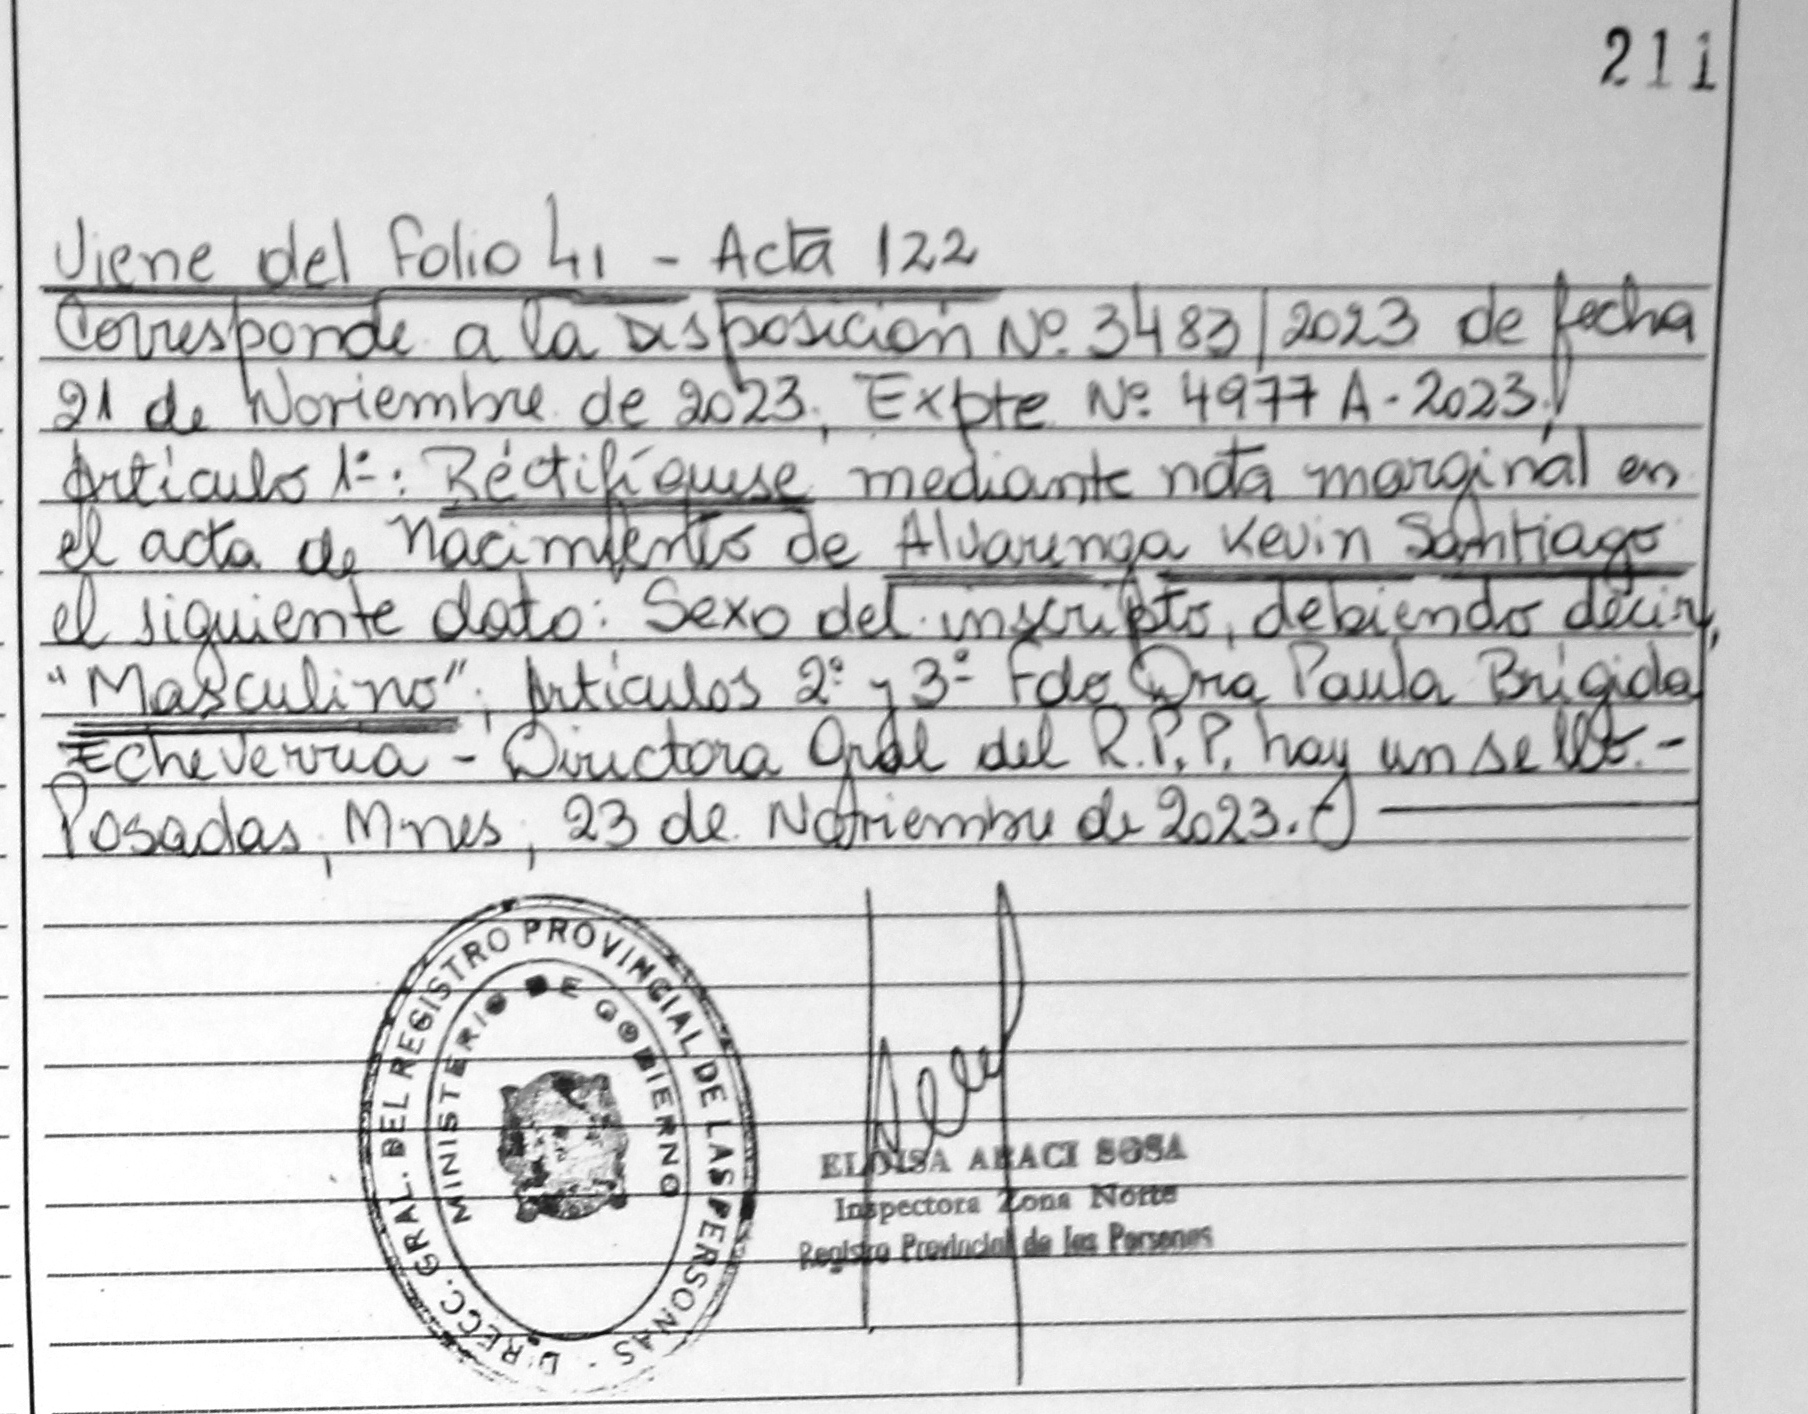 211
Viene del Folio 41 - Acta 122
Corresponde a la Disposición Nº. 3483/2023 de fecha
21 de Noviembre de 2023, Expte Nº. 4977 A - 2023.
Artículo 1º: Réctifíquese mediante nota marginal en
el acta de Nacimiento de Alvarenga Kevin Santiago
el siguiente dato: Sexo del inscripto, debiendo decir,
"Masculino"; Artículos 2º y 3º Fdo Dra Paula Brígida
Echeverria - Directora Gral del R.P.P. hay un sello.-
Posadas, Mnes, 23 de Noviembre de 2023.
DIRECC. GRAL. DEL REGISTRO PROVINCIAL DE LAS PERSONAS -
MINISTERIO DE GOBIERNO
ELOISA ARACI SOSA
Inspectora Zona Norte
Registro Provincial de las Personas